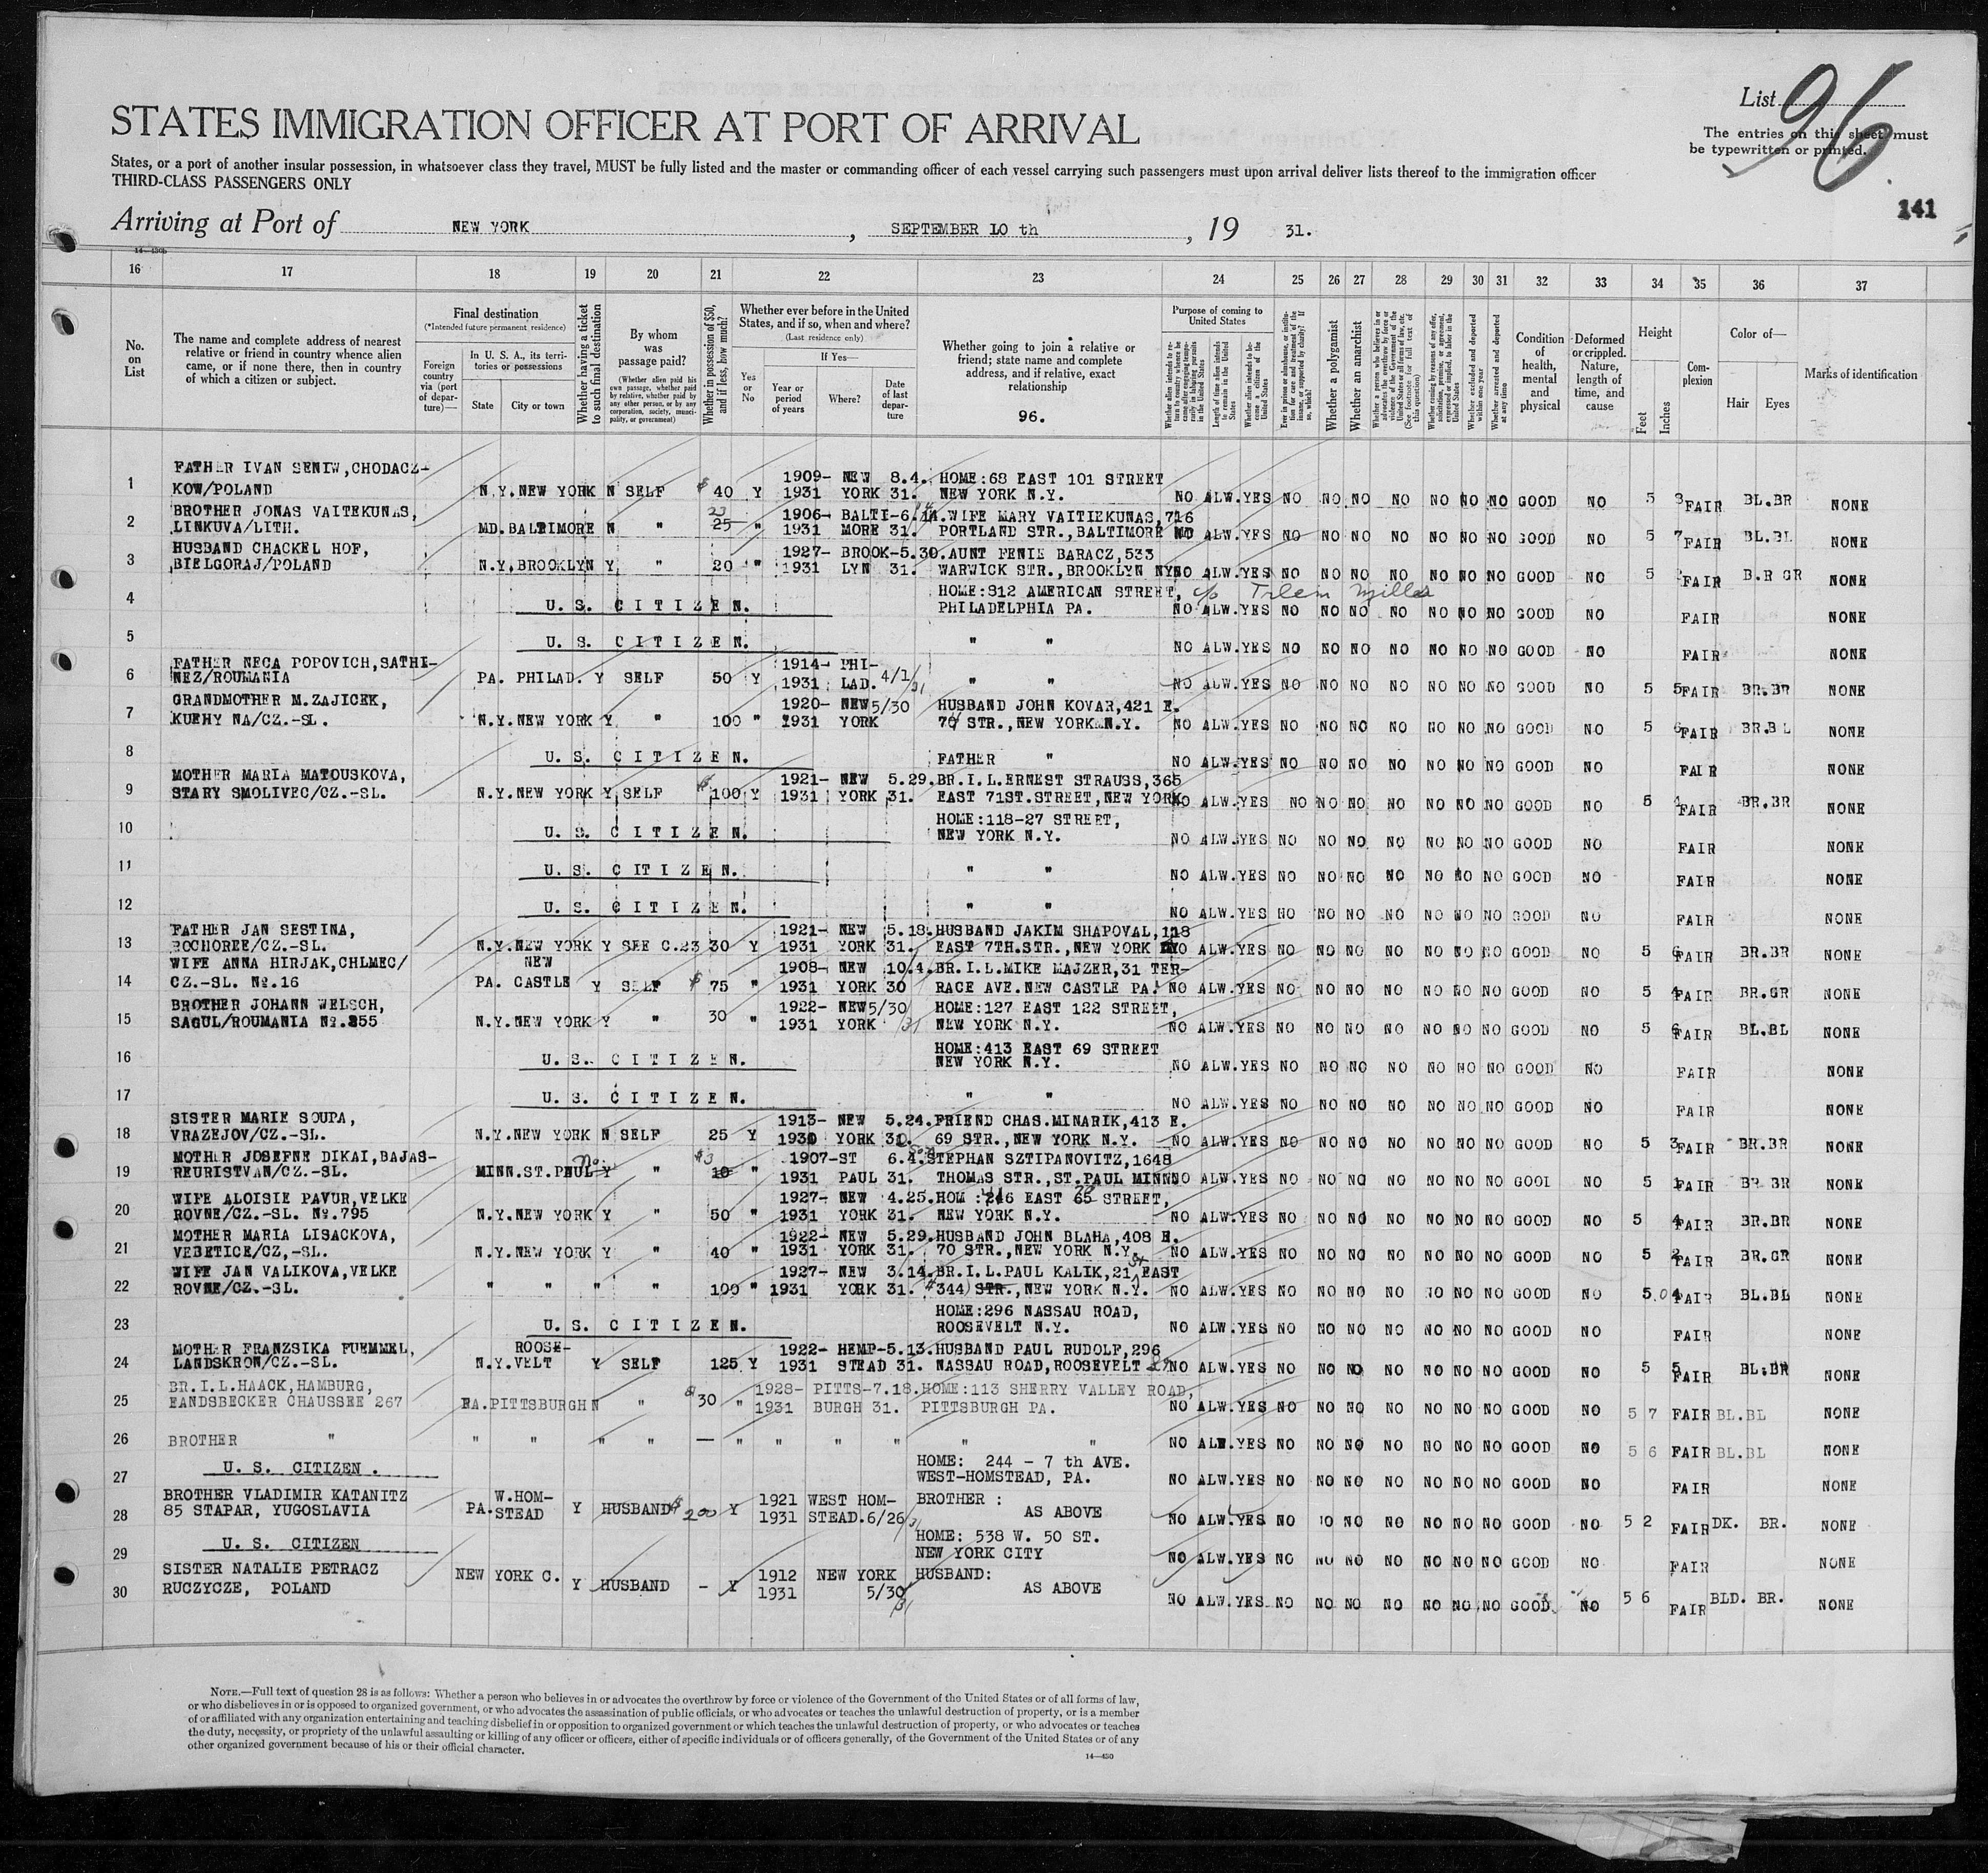 List 96
The entries on this sheet must
be typewritten or printed.
141
STATES IMMIGRATION OFFICER AT PORT OF ARRIVAL
States, or a port of another insular possession, in whatsoever class they travel, MUST be fully listed and the master or commanding officer of each vessel carrying such passengers must upon arrival deliver lists thereof to the immigration officer
THIRD-CLASS PASSENGERS ONLY
Arriving at Port of NEW YORK, SEPTEMBER 10 th, 19 31.
16 17 18 19 20 21 22 23 24 25 26 27 28 29 30 31 32 33 34 35 36 37
No. on List
The name and complete address of nearest relative or friend in country whence alien came, or if none there, then in country of which a citizen or subject.
Final destination
(*Intended future permanent residence)
Foreign country via (port of departure)—
In U. S. A., its territories or possessions
State
City or town
Whether having a ticket to such final destination
By whom was passage paid?
(Whether alien paid his own passage, whether paid by relative, whether paid by any other person, or by any corporation, society, municipality, or government)
Whether in possession of $50, and if less, how much?
Whether ever before in the United States, and if so, when and where?
(Last residence only)
Yes or No
If Yes—
Year or period of years
Where?
Date of last departure
Whether going to join a relative or friend; state name and complete address, and if relative, exact relationship
96.
Purpose of coming to United States
Whether alien intends to return to country whence he came after engaging temporarily in laboring pursuits in the United States
Length of time alien intends to remain in the United States
Whether alien intends to become a citizen of the United States
Ever in prison or almshouse, or institution for care and treatment of the insane, or supported by charity? If so, which?
Whether a polygamist
Whether an anarchist
Whether a person who believes in or advocates the overthrow by force or violence of the Government of the United States or all forms of law, etc. (See footnote for full text of this question)
Whether coming by reason of any offer, solicitation, promise, or agreement, expressed or implied, to labor in the United States
Whether excluded and deported within one year
Whether arrested and deported at any time
Condition of health, mental and physical
Deformed or crippled. Nature, length of time, and cause
Height
Feet
Inches
Complexion
Color of—
Hair
Eyes
Marks of identification
1 FATHER IVAN SENIW, CHODACZ- 1909- NEW 8.4. HOME:68 EAST 101 STREET
KOW/POLAND N.Y. NEW YORK N SELF $ 40 Y 1931 YORK 31. NEW YORK N.Y. NO ALW. YES NO NO NO NO NO NO NO GOOD NO 5 3 FAIR BL.BR NONE
2 BROTHER JONAS VAITEKUNAS, 23 1906- BALTI-6.14. WIFE MARY VAITIEKUNAS,716
LINKUVA/LITH. MD. BALTIMORE N " 25 " 1931 MORE 31. PORTLAND STR., BALTIMORE MD NO ALW. YES NO NO NO NO NO NO NO GOOD NO 5 7 FAIR BL.BL NONE
3 HUSBAND CHACKEL HOF, 1927- BROOK-5.30. AUNT FENIE BARACZ,533
BIELGORAJ/POLAND N.Y. BROOKLYN Y " 20 " 1931 LYN 31. WARWICK STR., BROOKLYN NY NO ALW. YES NO NO NO NO NO NO NO GOOD NO 5 FAIR B.R GR NONE
4 HOME:912 AMERICAN STREET, c/o Miller
U. S. CITIZEN. PHILADELPHIA PA. NO ALW. YES NO NO NO NO NO NO NO GOOD NO FAIR NONE
5 U. S. CITIZEN. " " NO ALW. YES NO NO NO NO NO NO NO GOOD NO FAIR NONE
6 FATHER NECA POPOVICH, SATHI- 1914- PHI-
NEZ/ROUMANIA PA. PHILAD. Y SELF 50 Y 1931 LAD. 4/1/31 " " NO ALW. YES NO NO NO NO NO NO NO GOOD NO 5 5 FAIR BR.BR NONE
7 GRANDMOTHER M. ZAJICEK, 1920- NEW 5/30 HUSBAND JOHN KOVAR,421 E.
KUEHY NA/CZ.-SL. N.Y. NEW YORK Y " 100 " 1931 YORK 70 STR., NEW YORK N.Y. NO ALW. YES NO NO NO NO NO NO NO GOOD NO 5 6 FAIR BR.BL NONE
8 U. S. CITIZEN. FATHER " NO ALW. YES NO NO NO NO NO NO NO GOOD NO FAIR NONE
9 MOTHER MARIA MATOUSKOVA, 1921- NEW 5.29. BR.I.L. ERNEST STRAUSS,365
STARY SMOLIVEC/CZ.-SL. N.Y. NEW YORK Y SELF $ 100 Y 1931 YORK 31. EAST 71ST. STREET, NEW YORK NO ALW. YES NO NO NO NO NO NO NO GOOD NO 5 4 FAIR BR.BR NONE
10 HOME:118-27 STREET,
U. S. CITIZEN. NEW YORK N.Y. NO ALW. YES NO NO NO NO NO NO NO GOOD NO FAIR NONE
11 U. S. CITIZEN. " " NO ALW. YES NO NO NO NO NO NO NO GOOD NO FAIR NONE
12 U. S. CITIZEN. " " NO ALW. YES NO NO NO NO NO NO NO GOOD NO FAIR NONE
13 FATHER JAN SESTINA, 1921- NEW 5.18. HUSBAND JAKIM SHAPOVAL,118
ROCHOREE/CZ.-SL. N.Y. NEW YORK Y SEE C.23 30 Y 1931 YORK 31. EAST 7TH. STR., NEW YORK NY NO ALW. YES NO NO NO NO NO NO NO GOOD NO 5 6 FAIR BR.BR NONE
14 WIFE ANNA HIRJAK, CHLMEC/ NEW 1908- NEW 10.4. BR.I.L. MIKE MAJZER,31 TER-
CZ.-SL. No.16 PA. CASTLE Y SELF $ 75 " 1931 YORK 30 RACE AVE. NEW CASTLE PA. NO ALW. YES NO NO NO NO NO NO NO GOOD NO 5 4 FAIR BR.GR NONE
15 BROTHER JOHANN WELSCH, 1922- NEW 5/30 HOME:127 EAST 122 STREET,
SAGUL/ROUMANIA No.355 N.Y. NEW YORK Y " 30 " 1931 YORK /31 NEW YORK N.Y. NO ALW. YES NO NO NO NO NO NO NO GOOD NO 5 6 FAIR BL.BL NONE
16 HOME:413 EAST 69 STREET
U. S. CITIZEN. NEW YORK N.Y. NO ALW. YES NO NO NO NO NO NO NO GOOD NO FAIR NONE
17 U. S. CITIZEN. " " NO ALW. YES NO NO NO NO NO NO NO GOOD NO FAIR NONE
18 SISTER MARIE SOUPA, 1913- NEW 5.24. FRIEND CHAS. MINARIK,413 E.
VRAZEJOV/CZ.-SL. N.Y. NEW YORK N SELF 25 Y 1930 YORK 30. 69 STR., NEW YORK N.Y. NO ALW. YES NO NO NO NO NO NO NO GOOD NO 5 3 FAIR BR.BR NONE
19 MOTHER JOSEFNE DIKAI, BAJAS- no $3 1907-ST 6.4. STEPHAN SZTIPANOVITZ,1648
REURISTVAN/CZ.-SL. MINN. ST. PAUL Y " 10 " 1931 PAUL 31. THOMAS STR., ST. PAUL MINN NO ALW. YES NO NO NO NO NO NO NO GOOL NO 5 1 FAIR BR BR NONE
20 WIFE ALOISIE PAVUR, VELKE 1927- NEW 4.25. HOM : 246 EAST 65 STREET,
ROVNE/CZ.-SL. No.795 N.Y. NEW YORK Y " 50 " 1931 YORK 31. NEW YORK N.Y. NO ALW. YES NO NO NO NO NO NO NO GOOD NO 5 4 FAIR BR.BR NONE
21 MOTHER MARIA LISACKOVA, 1922- NEW 5.29. HUSBAND JOHN BLAHA,408 E.
VEBETICE/CZ,-SL. N.Y. NEW YORK Y " 40 " 1931 YORK 31. 70 STR., NEW YORK N.Y. NO ALW. YES NO NO NO NO NO NO NO GOOD NO 5 2 FAIR BR.GR NONE
22 WIFE JAN VALIKOVA, VELKE 1927- NEW 3.14. BR.I.L. PAUL KALIK,21 st EAST
ROVNE/CZ.-SL. " " " " 100 " 1931 YORK 31. #344) STR., NEW YORK N.Y. NO ALW. YES NO NO NO NO NO NO NO GOOD NO 5.04 FAIR BL.BL NONE
23 HOME:296 NASSAU ROAD,
U. S. CITIZEN. ROOSEVELT N.Y. NO ALW. YES NO NO NO NO NO NO NO GOOD NO FAIR NONE
24 MOTHER FRANZSIKA FUEMMEL, ROOSE- 1922- HEMP-5.13. HUSBAND PAUL RUDOLF,296
LANDSKRON/CZ.-SL. N.Y. VELT Y SELF 125 Y 1931 STEAD 31. NASSAU ROAD, ROOSEVELT NO ALW. YES NO NO NO NO NO NO NO GOOD NO 5 5 FAIR BL.BR NONE
25 BR.I.L. HAACK, HAMBURG, 1928- PITTS-7.18. HOME:113 SHERRY VALLEY ROAD,
EANDSBECKER CHAUSSEE 267 PA. PITTSBURGH N " $ 30 " 1931 BURGH 31. PITTSBURGH PA. NO ALW. YES NO NO NO NO NO NO NO GOOD NO 5 7 FAIR BL.BL NONE
26 BROTHER " " " " " — " " " " " " NO ALW. YES NO NO NO NO NO NO NO GOOD NO 5 6 FAIR BL.BL NONE
27 U. S. CITIZEN . HOME: 244 - 7 th AVE.
WEST-HOMSTEAD, PA. NO ALW. YES NO NO NO NO NO NO NO GOOD NO FAIR NONE
28 BROTHER VLADIMIR KATANITZ W. HOM- 1921 WEST HOM- BROTHER :
85 STAPAR, YUGOSLAVIA PA. STEAD Y HUSBAND $ 200 Y 1931 STEAD. 6/26/31 AS ABOVE NO ALW. YES NO NO NO NO NO NO NO GOOD NO 5 2 FAIR DK. BR. NONE
29 U. S. CITIZEN HOME: 538 W. 50 ST.
NEW YORK CITY NO ALW. YES NO NO NO NO NO NO NO GOOD NO FAIR NONE
30 SISTER NATALIE PETRACZ NEW YORK C. 1912 NEW YORK HUSBAND:
RUCZYCZE, POLAND Y HUSBAND - Y 1931 5/30/31 AS ABOVE NO ALW. YES NO NO NO NO NO NO NO GOOD NO 5 6 FAIR BLD. BR. NONE
NOTE.—Full text of question 28 is as follows: Whether a person who believes in or advocates the overthrow by force or violence of the Government of the United States or of all forms of law,
or who disbelieves in or is opposed to organized government, or who advocates the assassination of public officials, or who advocates or teaches the unlawful destruction of property, or is a member
of or affiliated with any organization entertaining and teaching disbelief in or opposition to organized government or which teaches the unlawful destruction of property, or who advocates or teaches
the duty, necessity, or propriety of the unlawful assaulting or killing of any officer or officers, either of specific individuals or of officers generally, of the Government of the United States or of any
other organized government because of his or their official character.
14—430